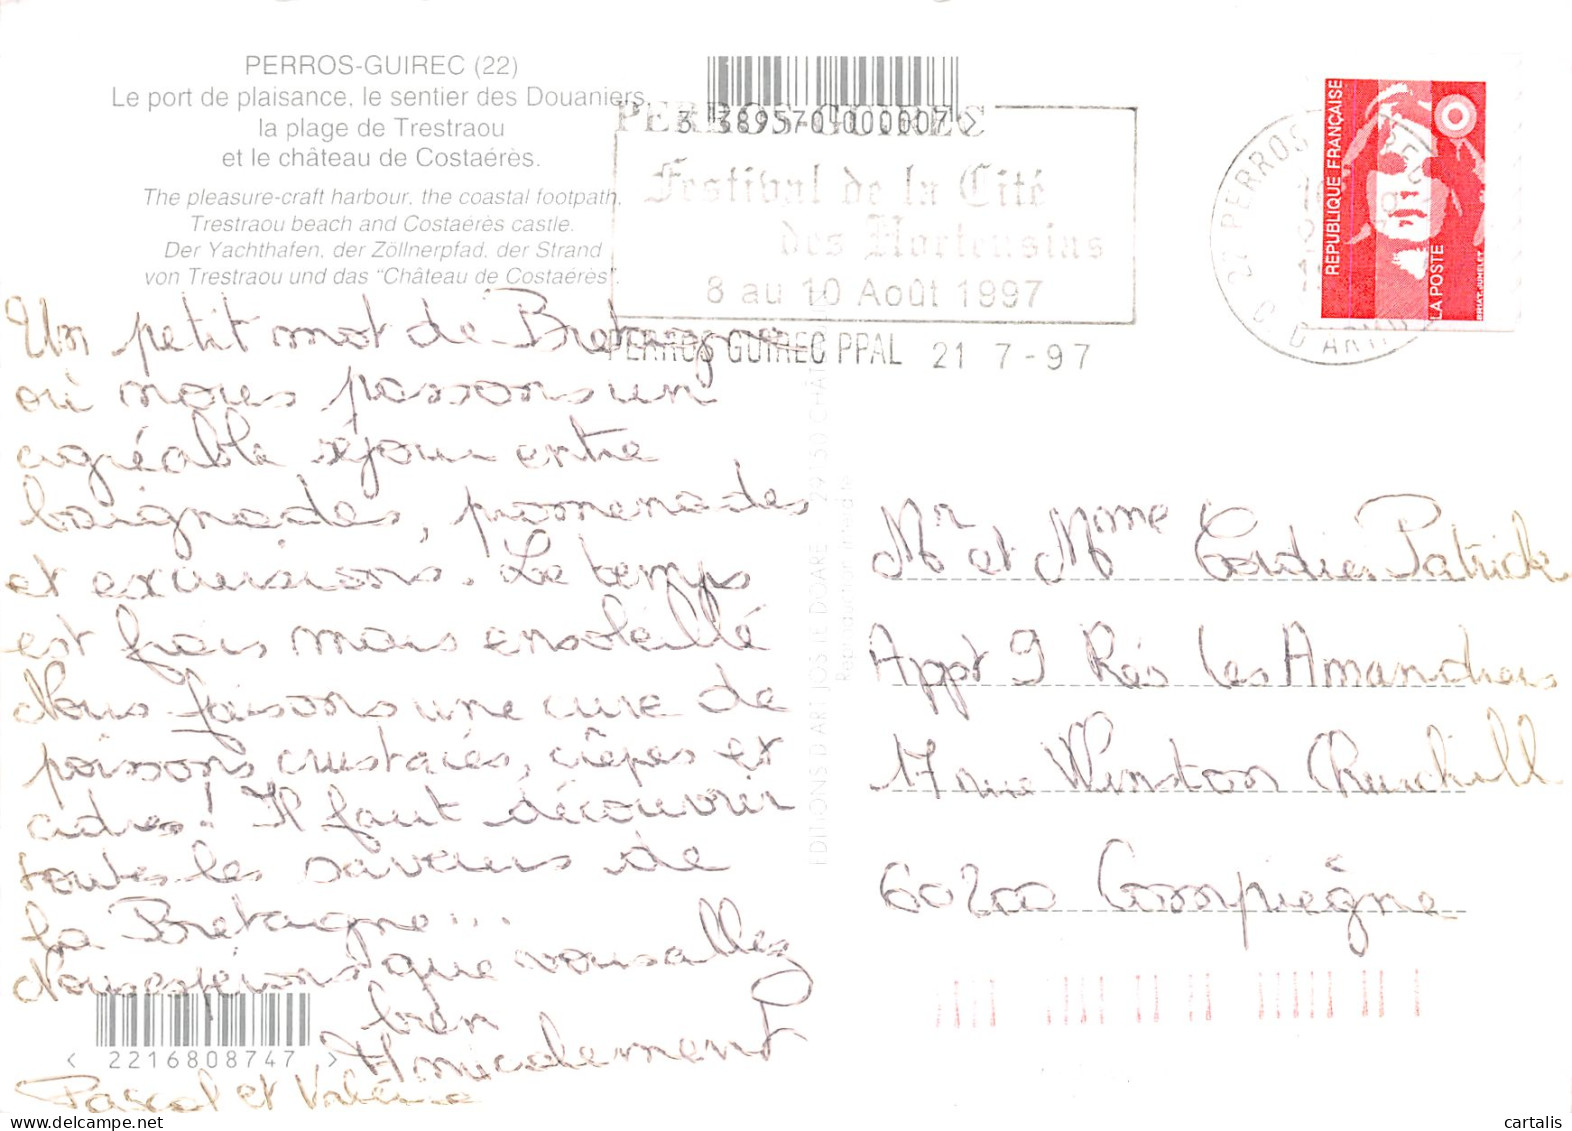 PERROS-GUIREC (22)
Le port de plaisance, le sentier des Douaniers,
la plage de Trestraou
et le château de Costaérès.
The pleasure-craft harbour, the coastal footpath,
Trestraou beach and Costaérès castle.
Der Yachthafen, der Zöllnerpfad, der Strand
von Trestraou und das "Château de Costaérès".
3 389570 000007 >
PERROS-GUIREC
Festival de la Cité
des Hortensias
8 au 10 Août 1997
PERROS GUIREC PPAL 21 7-97
22 PERROS
D'ARMOR
REPUBLIQUE FRANÇAISE
LA POSTE
BRIAT-JUMELET
Un petit mot de Bretagne
où nous passons un
agréable séjour entre
baignades, promenades
et excursions. Le temps
est frais mais ensoleillé
Nous faisons une cure de
poissons, crustacés, crêpes et
cidres! Il faut découvrir
toutes les saveurs de
la Bretagne...
Nous espérons que vous allez
bien
Amicalement
Pascal et Valérie
< 2216808747 >
EDITIONS D'ART JOS LE DOARÉ 29150 CHÂTEAULIN
Reproduction interdite
Mr et Mme Cordier Patrick
Appt 9 Rés les Amandiers
17 rue Winston Churchill
60200 Compiègne
cartalis
delcampe.net